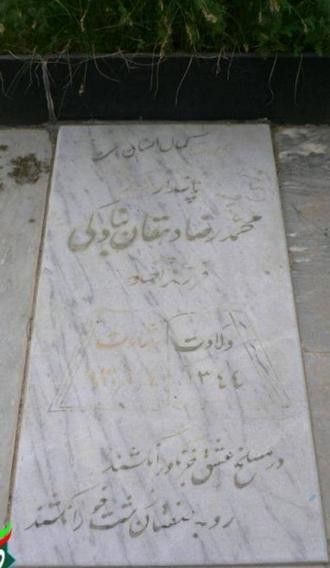 کمال انسان است
پاسدار
محمدرضا دهقان بنادکی
فرزند
ولادت شهادت
۱۳۴۴
در مسلخ عشق جز نکو را نکشند
روبه صفتان زشت خو را نکشند